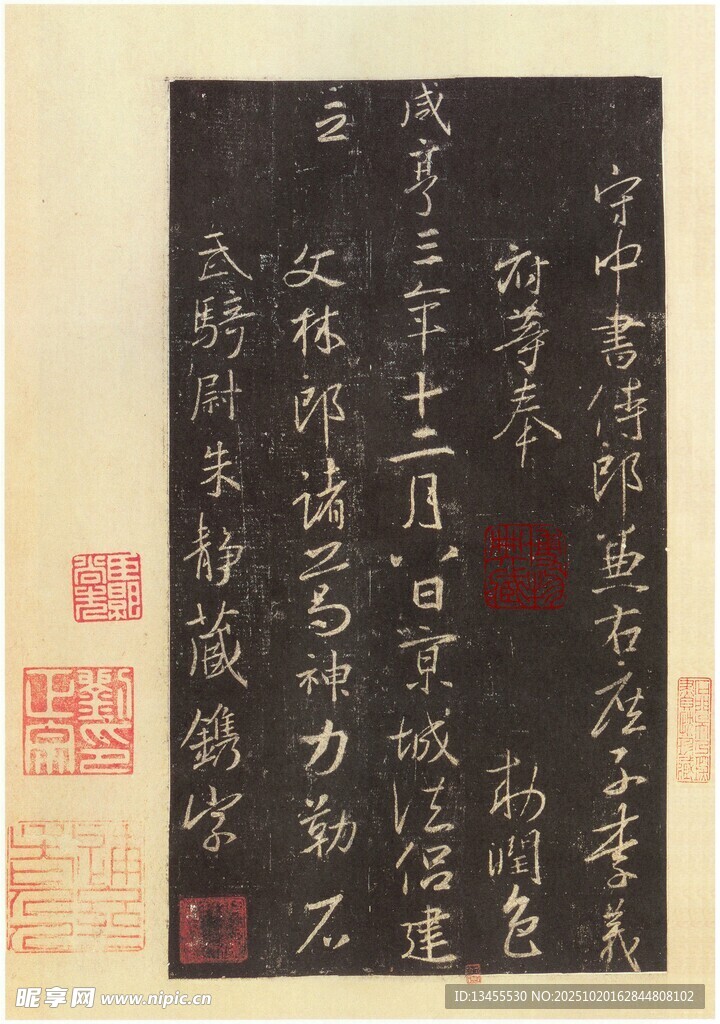 守中書侍郎兼右庶子李義
府等奉 勅潤色
咸亨三年十二月八日京城法侶建
立
文林郎諸葛神力勒石
武騎尉朱静藏鐫字
昵享网 www.nipic.cn
ID:13455530 NO:20251020162844808102